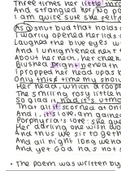 Three times her little throat
And strangled her. No pa
I am quite sure she felt n
shut bud that holds
I warily oped her lids
Laughed the blue eyes w
And I untightened next t
About her neck; her cheek
Blushed bright beneath
I propped her head up as b
Only, this time my should
Her head, which droops
The smiling rosy little h
So glad it has its utmo
That all it scorned at on
And I, its love, am gaine
Porphyria's love: she gue
Her darling one wish wo
And thus we sit togeth
And all night long we ha
And yet God has not s
• The poem was written by